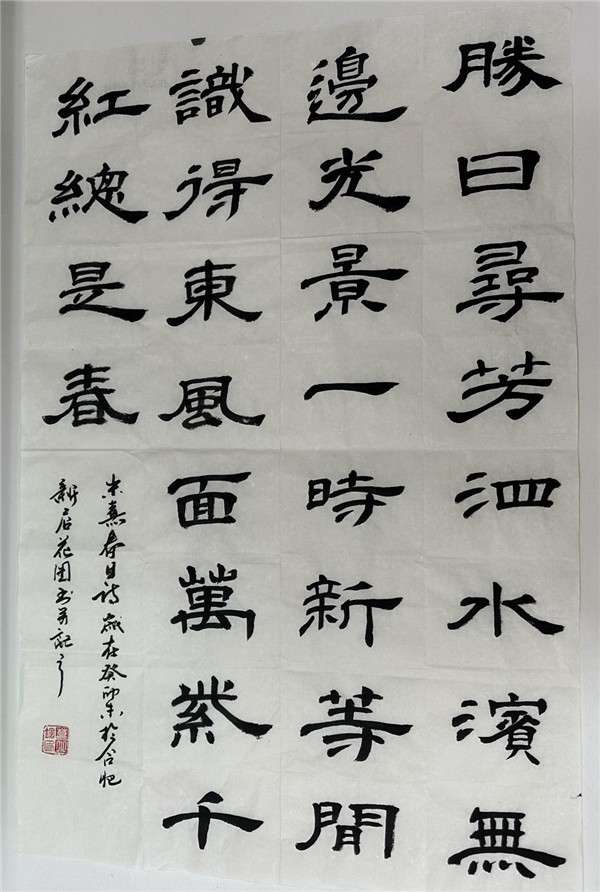 勝日尋芳泗水濱無
邊光景一時新等閒
識得東風面萬紫千
紅總是春
朱熹春日詩歲在癸卯於合肥
新居花園书並記之